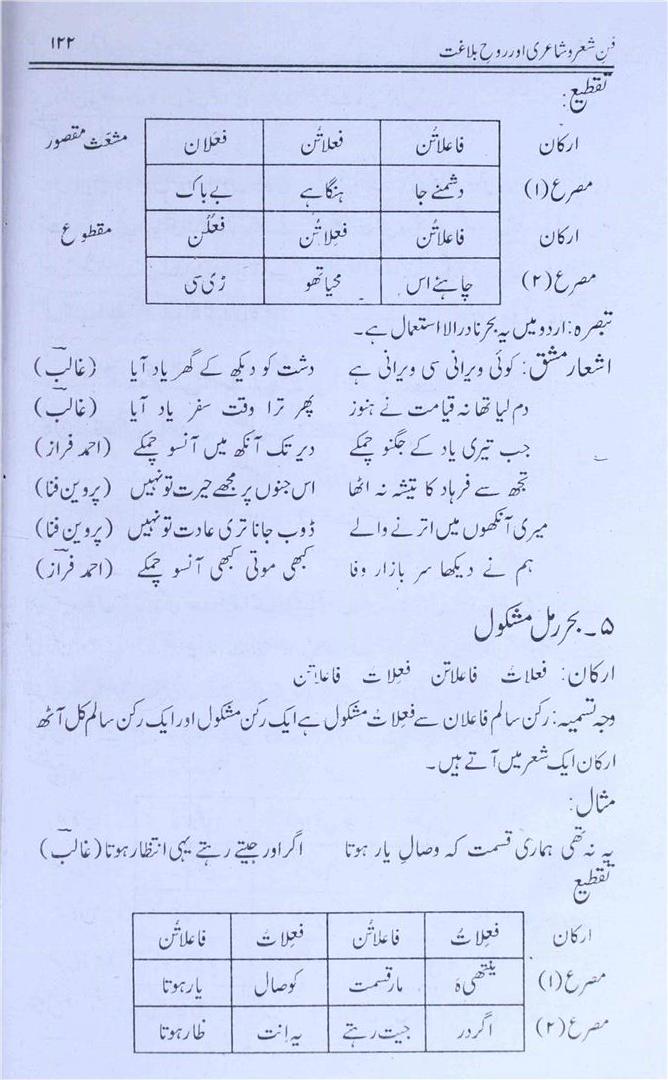 فنِ شعر و شاعری اور روحِ بلاغت ۱۲۲
تقطیع:
ارکان فاعلاتُن فعلاتُن فعلان مشعّث مقصور
مصرع (۱) دشمنے جا ہنگاہے بے باک
ارکان فاعلاتُن فعِلاتُن فعْلُن مقطوع
مصرع (۲) چاہنے اس محیاتھو ڑی سی
تبصرہ: اردو میں یہ بحر نادرالاستعمال ہے۔
اشعار مشق: کوئی ویرانی سی ویرانی ہے دشت کو دیکھ کے گھر یاد آیا (غالب)
دم لیا تھا نہ قیامت نے ہنوز پھر ترا وقت سفر یاد آیا (غالب)
جب تیری یاد کے جگنو چمکے دیر تک آنکھ میں آنسو چمکے (احمد فراز)
تجھ سے فرہاد کا تیشہ نہ اٹھا اس جنوں پر مجھے حیرت تو نہیں (پروین فنا)
میری آنکھوں میں اترنے والے ڈوب جانا تری عادت تو نہیں (پروین فنا)
ہم نے دیکھا سر بازار وفا کبھی موتی کبھی آنسو چمکے (احمد فراز)
۵۔ بحر رمل مشکول
ارکان: فعلاتُ فاعلاتن فعِلات فاعلاتن
وجہ تسمیہ: رکن سالم فاعلان سے فعِلاتُ مشکول ہے ایک رکن مشکول اور ایک رکن سالم کل آٹھ
ارکان ایک شعر میں آتے ہیں۔
مثال:
یہ نہ تھی ہماری قسمت کہ وصالِ یار ہوتا اگر اور جیتے رہتے یہی انتظار ہوتا (غالب)
تقطیع
ارکان فعِلاتُ فاعلاتُن فعِلاتُ فاعلاتُن
مصرع (۱) ینتھی ہَ مار قسمت کوصال یار ہوتا
مصرع (۲) اگردر جیت رہتے یہ اِنت ظار ہوتا